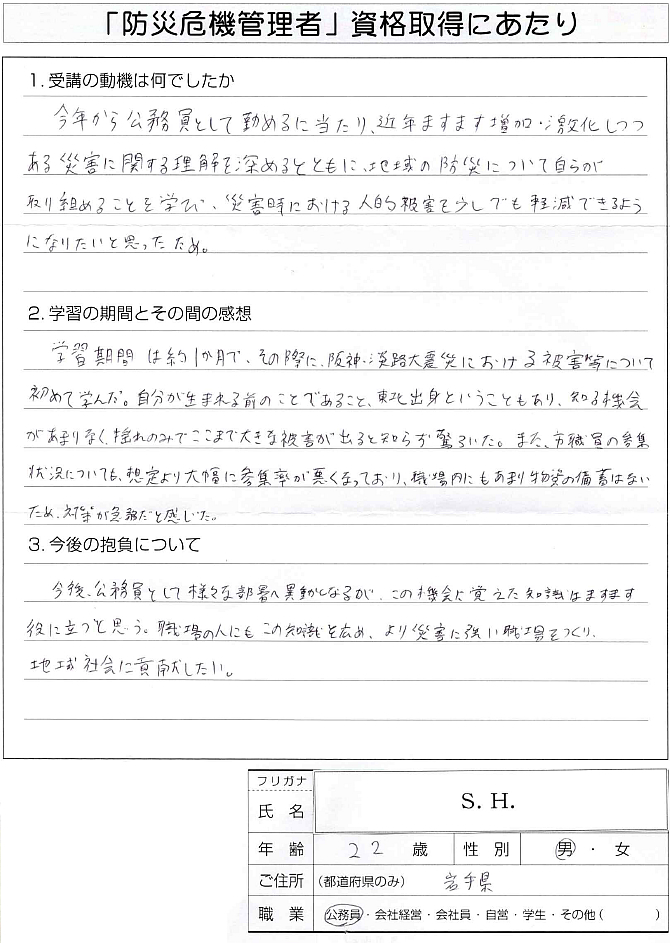 「防災危機管理者」資格取得にあたり
1. 受講の動機は何でしたか
今年から公務員として勤めるに当たり、近年ますます増加・激化しつつ
ある災害に関する理解を深めるとともに、地域の防災について自らが
取り組めることを学び、災害時における人的被害を少しでも軽減できるよう
になりたいと思ったため。
2. 学習の期間とその間の感想
学習期間は約1か月で、その際に、阪神・淡路大震災における被害等について
初めて学んだ。自分が生まれる前のことであること、東北出身ということもあり、知る機会
があまりなく、揺れのみでここまで大きな被害が出ると知らず驚いた。また、市職員の参集
状況についても、想定より大幅に参集率が悪くなっており、職場内にもあまり物資の備蓄はない
ため、対策が急務だと感じた。
3. 今後の抱負について
今後、公務員として様々な部署へ異動となるが、この機会に覚えた知識はますます
役に立つと思う。職場の人にもこの知識を広め、より災害に強い職場をつくり、
地域社会に貢献したい。
フリガナ
氏 名 S. H.
年 齢 22 歳 性 別 男 ・ 女
ご住所 (都道府県のみ) 岩手県
職 業 公務員・会社経営・会社員・自営・学生・その他( )